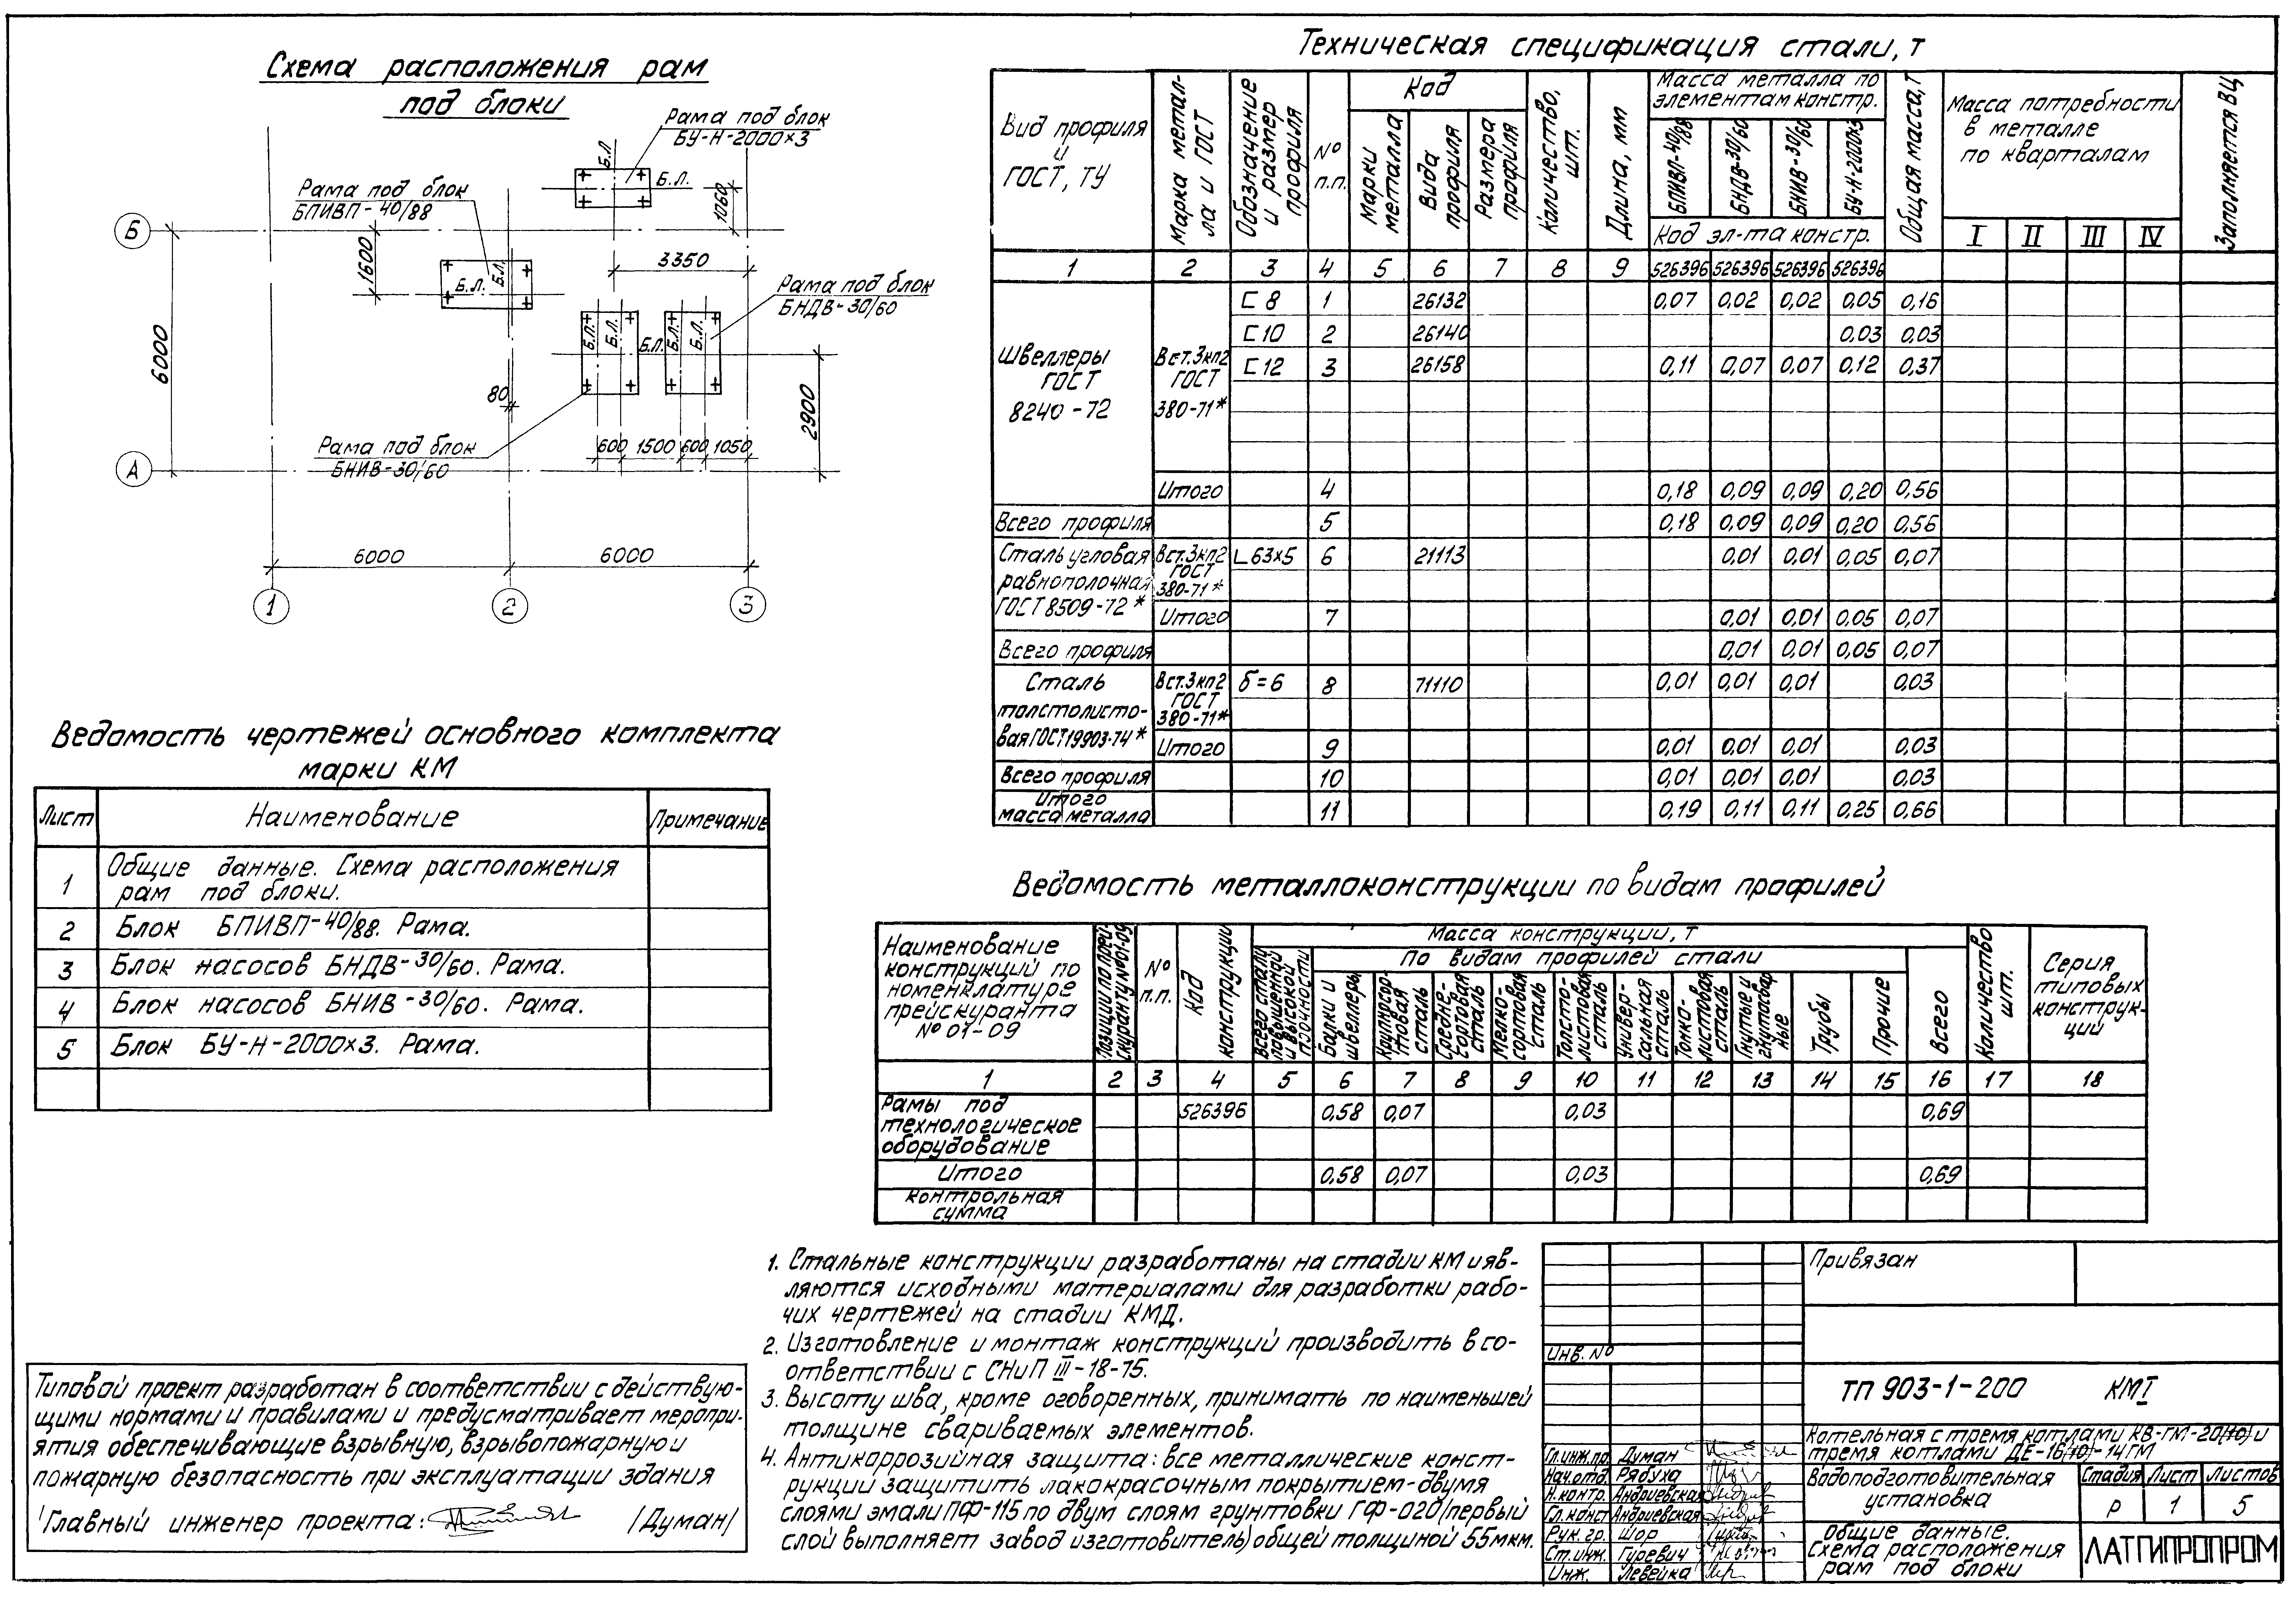 Схема расположения рам
под блоки
Рама под блок
БУ-Н-2000×3
Рама под блок
БПИВП-40/88
Рама под блок
БНДВ-30/60
Рама под блок
БНИВ-30/60
Б.Л.
Б.Л.
Б.Л.
Б.Л.
Б.Л.
Б.Л.
Б.Л.
Б.Л.
Б.Л.
Б
А
1060
1600
3350
6000
80
2900
600 1500 600 1050
6000 6000
1 2 3
Ведомость чертежей основного комплекта
марки КМ
Лист Наименование Примечание
1 Общие данные. Схема расположения
рам под блоки.
2 Блок БПИВП-40/88. Рама.
3 Блок насосов БНДВ-30/60. Рама.
4 Блок насосов БНИВ-30/60. Рама.
5 Блок БУ-Н-2000×3. Рама.
Типовой проект разработан в соответствии с действую-
щими нормами и правилами и предусматривает меропри-
ятия обеспечивающие взрывную, взрывопожарную и
пожарную безопасность при эксплуатации здания
Главный инженер проекта: /Думан/
Техническая спецификация стали, т
Вид профиля
и
ГОСТ, ТУ
Марка метал-
ла и ГОСТ
Обозначение
и размер
профиля
№
п.п.
Код
Марки
металла
Вида
профиля
Размера
профиля
Количество,
шт.
Длина, мм
Масса металла по
элементам констр.
БПИВП-40/88
БНДВ-30/60
БНИВ-30/60
БУ-Н-2000×3
Код эл-та констр.
Общая масса, т
Масса потребности
в металле
по кварталам
I II III IV
Заполняется ВЦ
1 2 3 4 5 6 7 8 9 526396 526396 526396 526396
Швеллеры
ГОСТ
8240-72
Вст.3кп2
ГОСТ
380-71*
⊏ 8 1 26132 0,07 0,02 0,02 0,05 0,16
⊏ 10 2 26140 0,03 0,03
⊏ 12 3 26158 0,11 0,07 0,07 0,12 0,37
Итого 4 0,18 0,09 0,09 0,20 0,56
Всего профиля 5 0,18 0,09 0,09 0,20 0,56
Сталь угловая
равнополочная
ГОСТ 8509-72*
Вст.3кп2
ГОСТ
380-71*
∟63×5 6 21113 0,01 0,01 0,05 0,07
Итого 7 0,01 0,01 0,05 0,07
Всего профиля 0,01 0,01 0,05 0,07
Сталь
толстолисто-
вая ГОСТ 19903-74*
Вст.3кп2
ГОСТ
380-71*
δ=6 8 71110 0,01 0,01 0,01 0,03
Итого 9 0,01 0,01 0,01 0,03
Всего профиля 10 0,01 0,01 0,01 0,03
Итого
масса металла 11 0,19 0,11 0,11 0,25 0,66
Ведомость металлоконструкции по видам профилей
Наименование
конструкций по
номенклатуре
прейскуранта
№ 01-09
Позиции по прей-
скуранту №01-09
№
п.п.
Код
конструкции
Масса конструкции, т
Всего стали
повышенной
и высокой
прочности
По видам профилей стали
Балки и
швеллеры
Крупносор-
товая
сталь
Средне-
сортовая
сталь
Мелко-
сортовая
сталь
Толсто-
листовая
сталь
Универ-
сальная
сталь
Тонко-
листовая
сталь
Гнутые и
гнутосвар
ные
Трубы
Прочие
Всего
Количество
шт.
Серия
типовых
конструк-
ций
1 2 3 4 5 6 7 8 9 10 11 12 13 14 15 16 17 18
Рамы под
технологическое
оборудование
526396 0,58 0,07 0,03 0,69
Итого 0,58 0,07 0,03 0,69
Контрольная
сумма
1. Стальные конструкции разработаны на стадии КМ и яв-
ляются исходными материалами для разработки рабо-
чих чертежей на стадии КМД.
2. Изготовление и монтаж конструкций производить в со-
ответствии с СНиП III-18-75.
3. Высоту шва, кроме оговоренных, принимать по наименьшей
толщине свариваемых элементов.
4. Антикоррозийная защита: все металлические конст-
рукции защитить лакокрасочным покрытием-двумя
слоями эмали ПФ-115 по двум слоям грунтовки ГФ-020 (первый
слой выполняет завод изготовитель) общей толщиной 55мкм.
Привязан
Инв. №
ТП 903-1-200 КМI
Котельная с тремя котлами КВ-ГМ-20(10) и
тремя котлами ДЕ-16(10)-14ГМ
Гл.инж.пр. Думан
Нач.отд. Рябуха
Н.контр. Андриевская
Гл.конст Андриевская
Рук. гр. Шор
Ст.инж. Гуревич
Инж. Левейка
Водоподготовительная
установка
Стадия Лист Листов
Р 1 5
Общие данные.
Схема расположения
рам под блоки
ЛАТГИПРОПРОМ